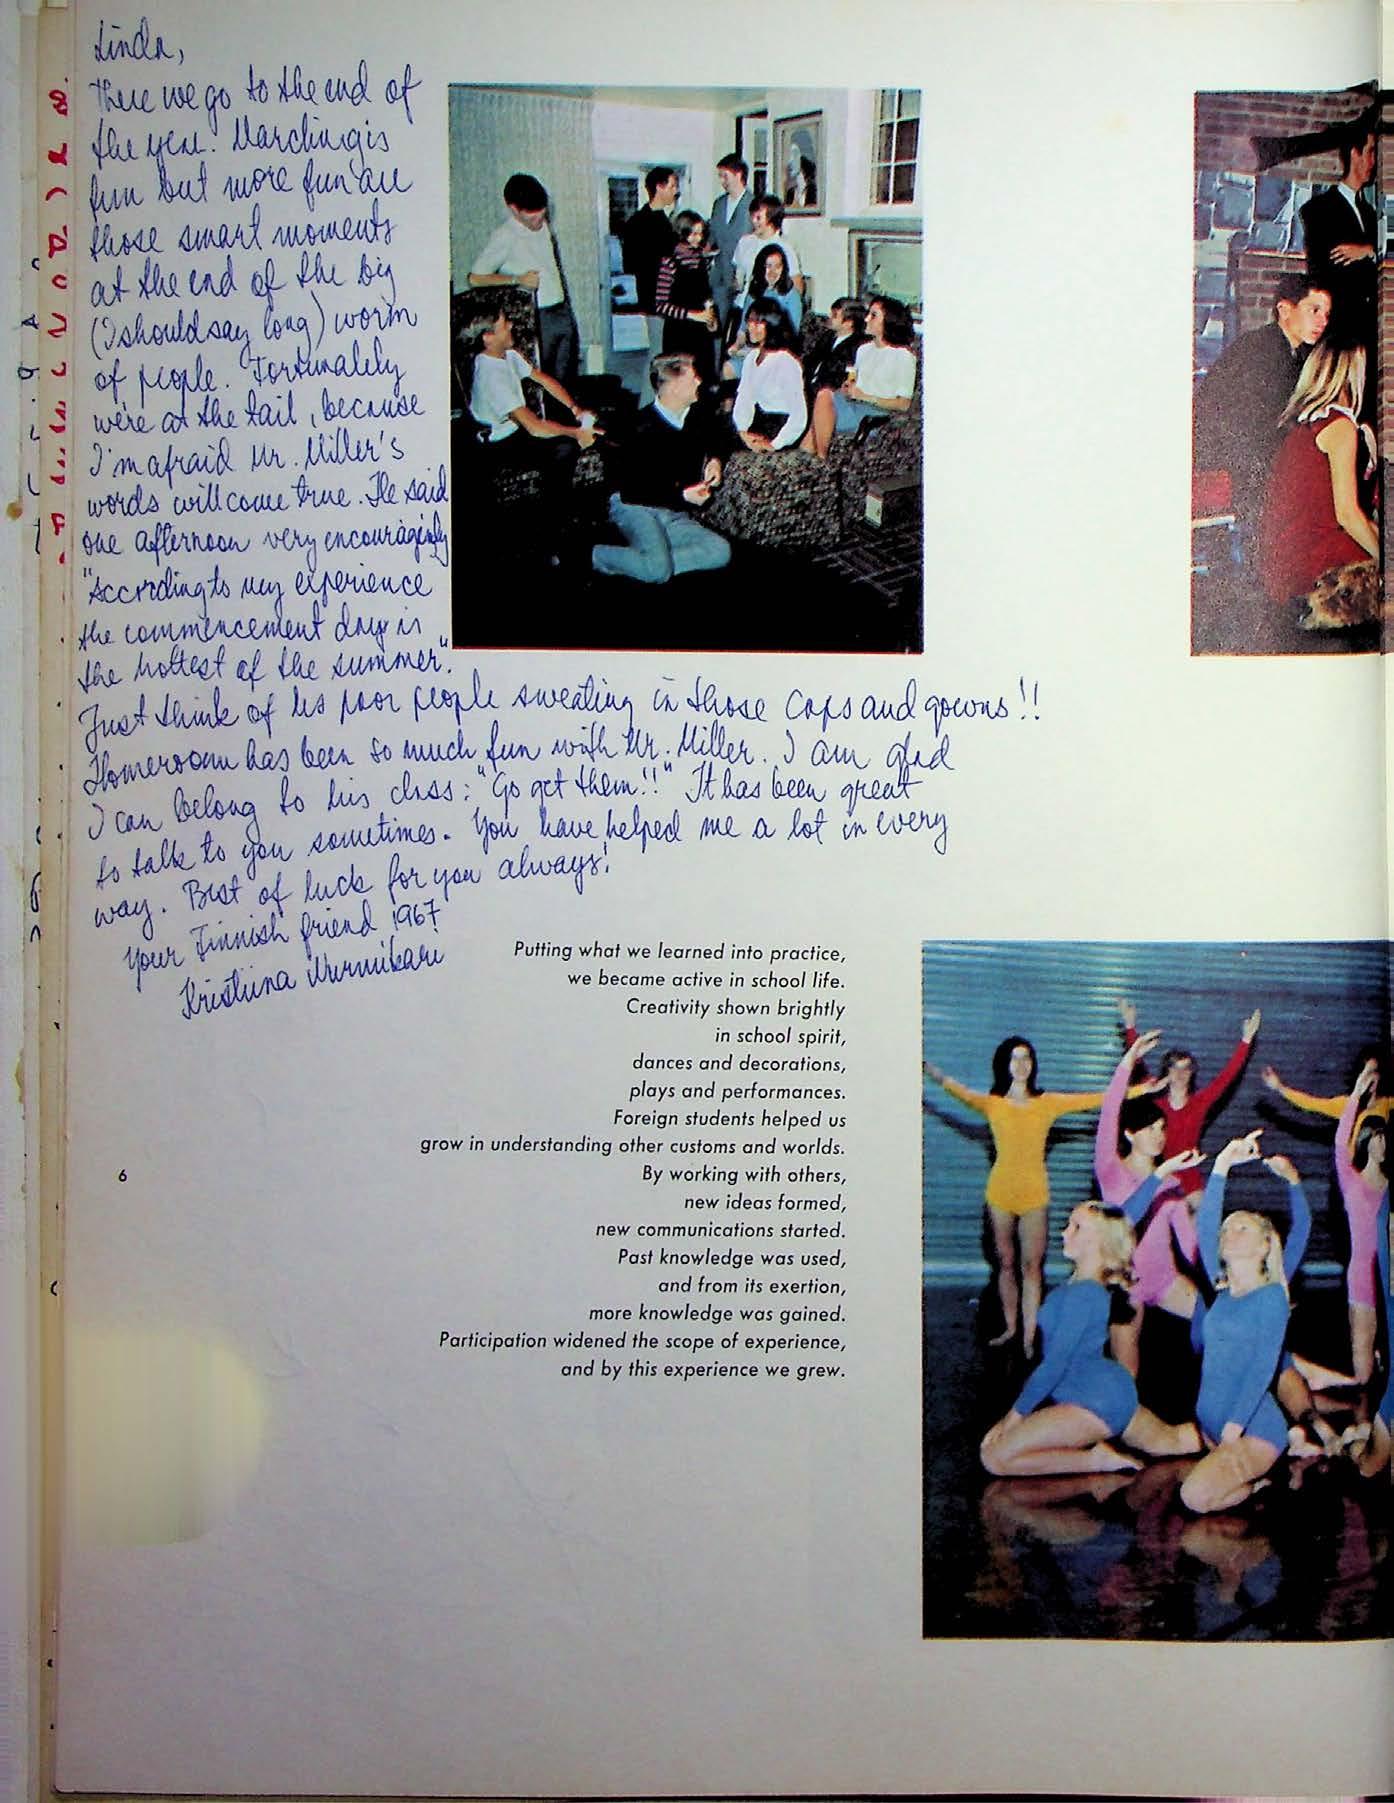 Linda,
There we go to the end of
the year. Marching is
fun but more fun are
those smart moments
at the end of the big
(I should say long) worm
of people. Fortunately
we're at the tail, because
I'm afraid Mr. Miller's
words will come true. He said
one afternoon very encouragingly
"According to my experience
the commencement day is
the hottest of the summer".
Just think of us poor people sweating in those caps and gowns!!
Homeroom has been so much fun with Mr. Miller. I am glad
I can belong to his class: "Go get them!!" It has been great
to talk to you sometimes. You have helped me a lot in every
way. Best of luck for you always!
Your Finnish friend 1967
Kristiina Nurmikari
Putting what we learned into practice,
we became active in school life.
Creativity shown brightly
in school spirit,
dances and decorations,
plays and performances.
Foreign students helped us
grow in understanding other customs and worlds.
By working with others,
new ideas formed,
new communications started.
Past knowledge was used,
and from its exertion,
more knowledge was gained.
Participation widened the scope of experience,
and by this experience we grew.
6